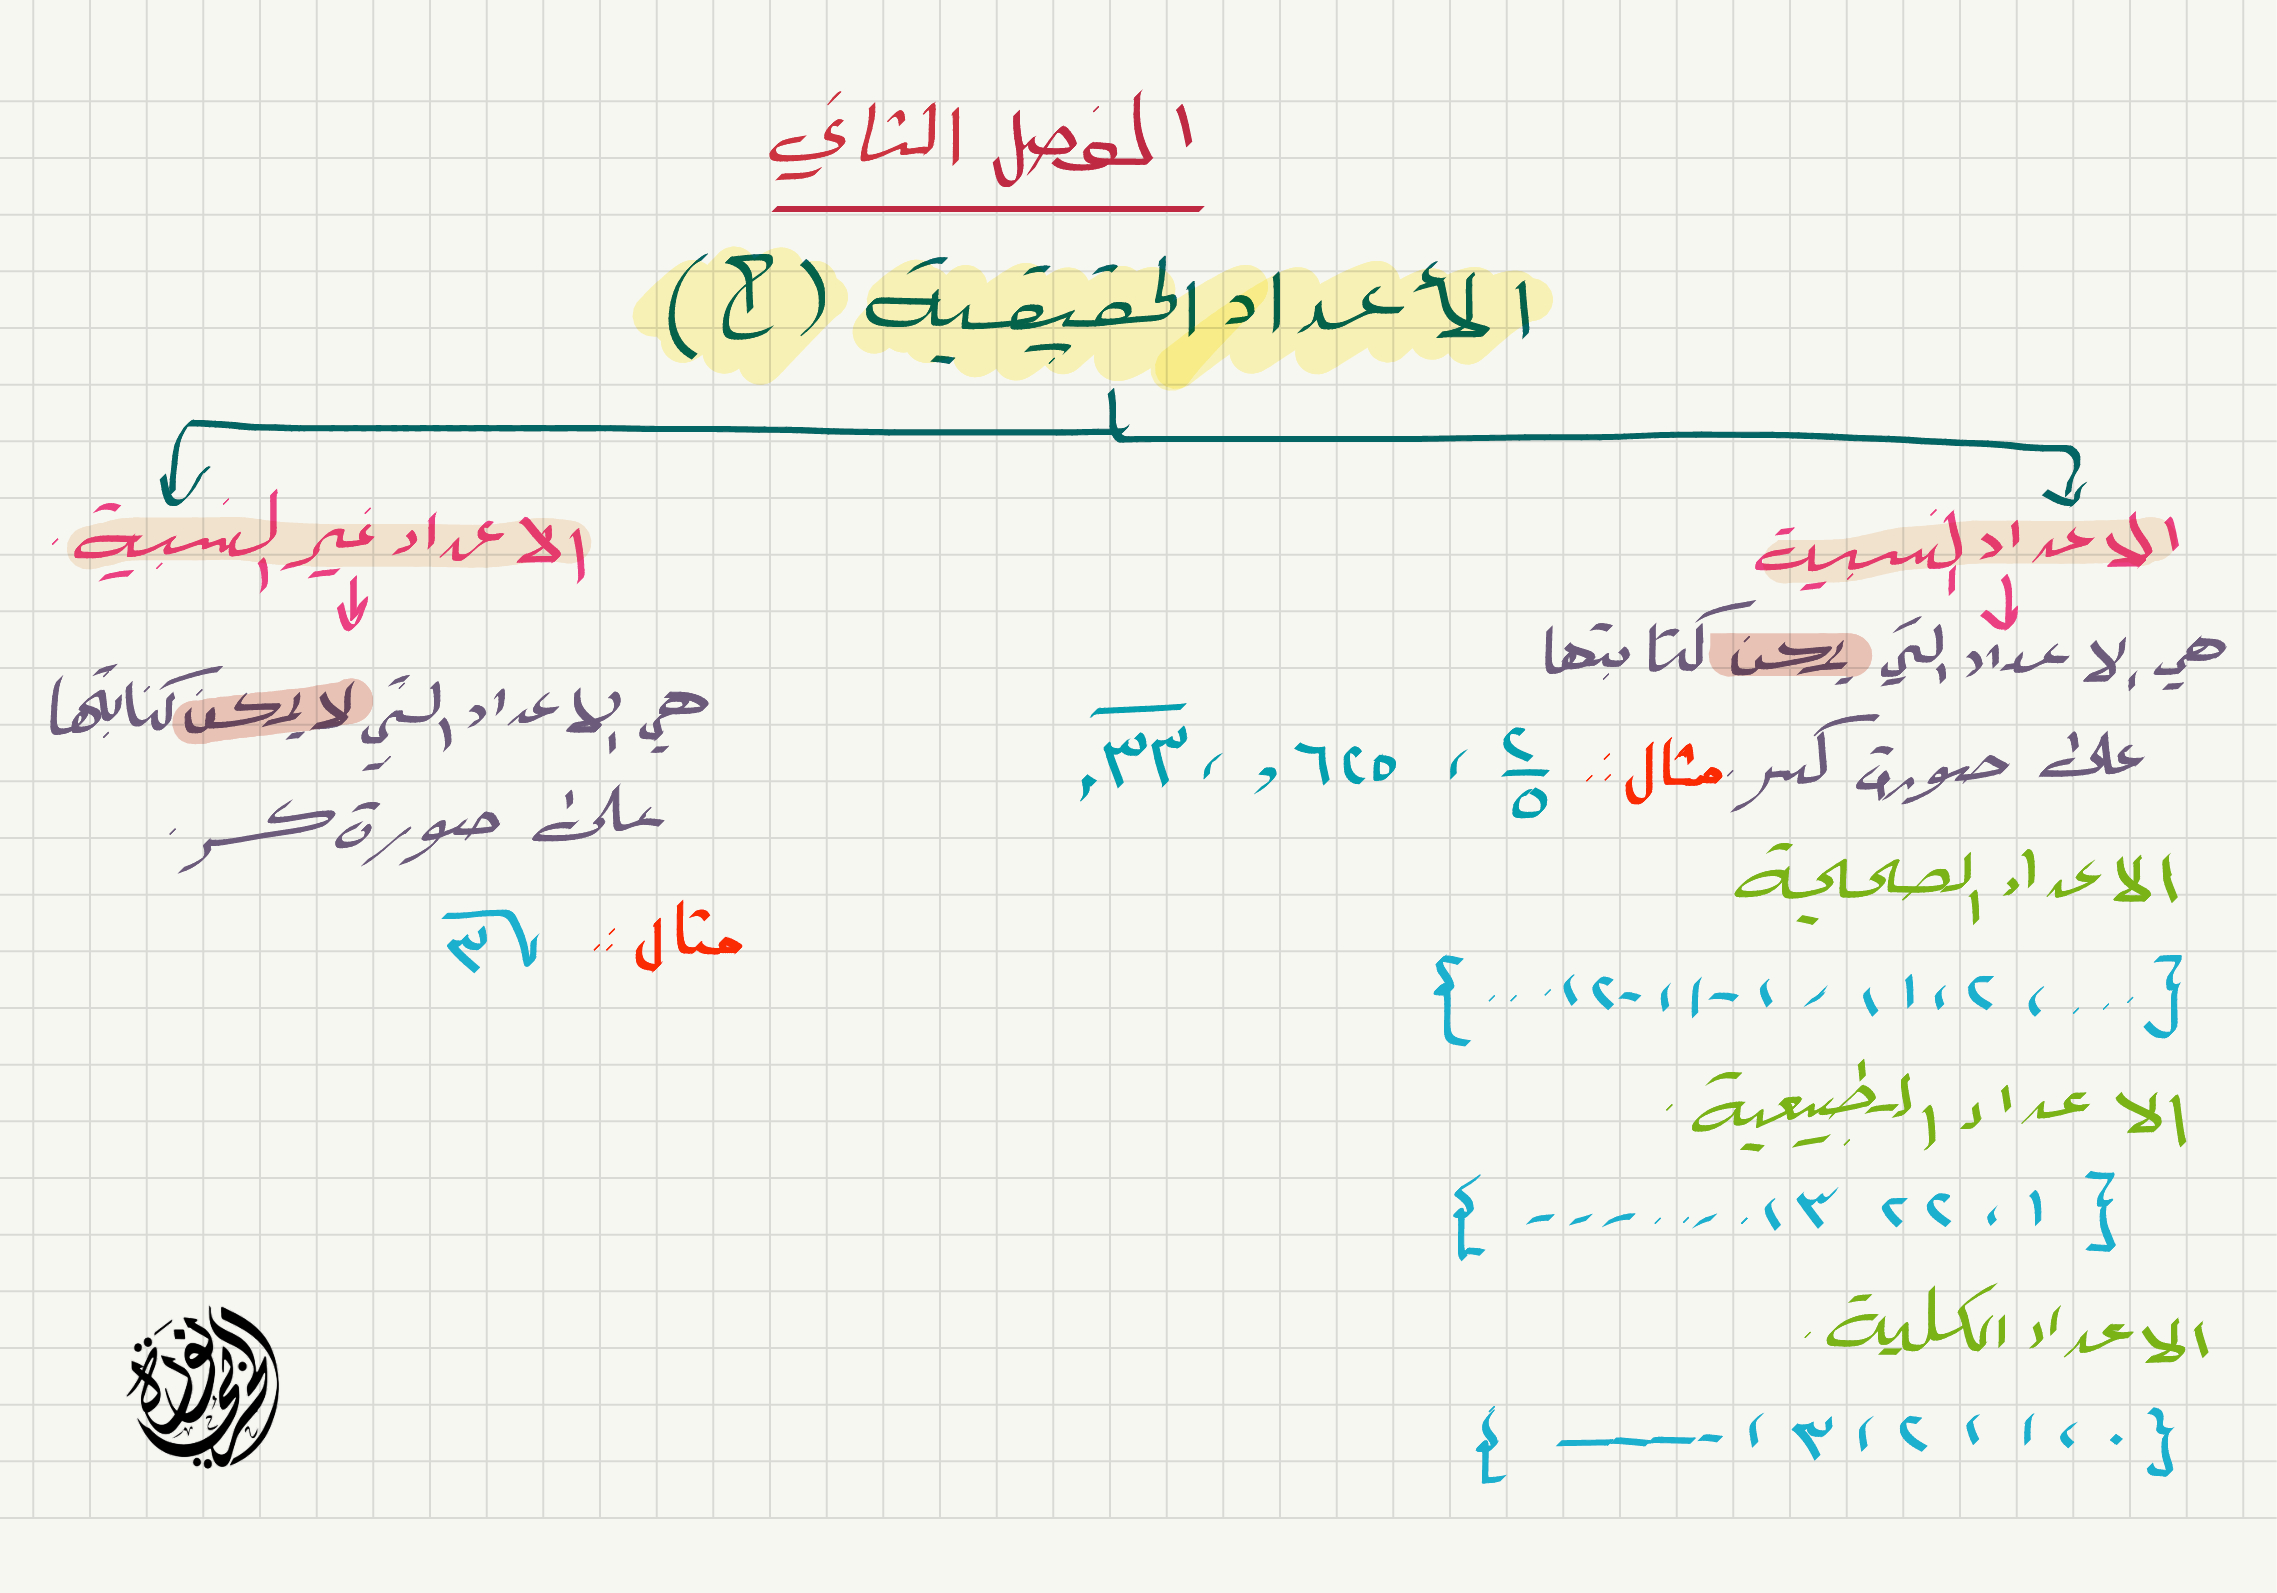 الفصل الثاني
الأعداد الحقيقية (ح)
الاعداد النسبية
هي الاعداد التي يمكن كتابتها
على صورة كسر. مثال: ٢/٥ ، ٦٢٥,. ، ٣٣,.
الاعداد الصحيحة
{... ، ٢ ، ١ ، ٠ ، -١ ، -٢ ، ...}
الاعداد الطبيعية.
{ ١ ، ٢ ٢ ٣ ، ........ }
الاعداد الكلية.
{ ٠ ، ١ ، ٢ ، ٣ ، ــــــ }
الاعداد غير النسبية.
هي الاعداد التي لا يمكن كتابتها
على صورة كسر.
مثال: √٣